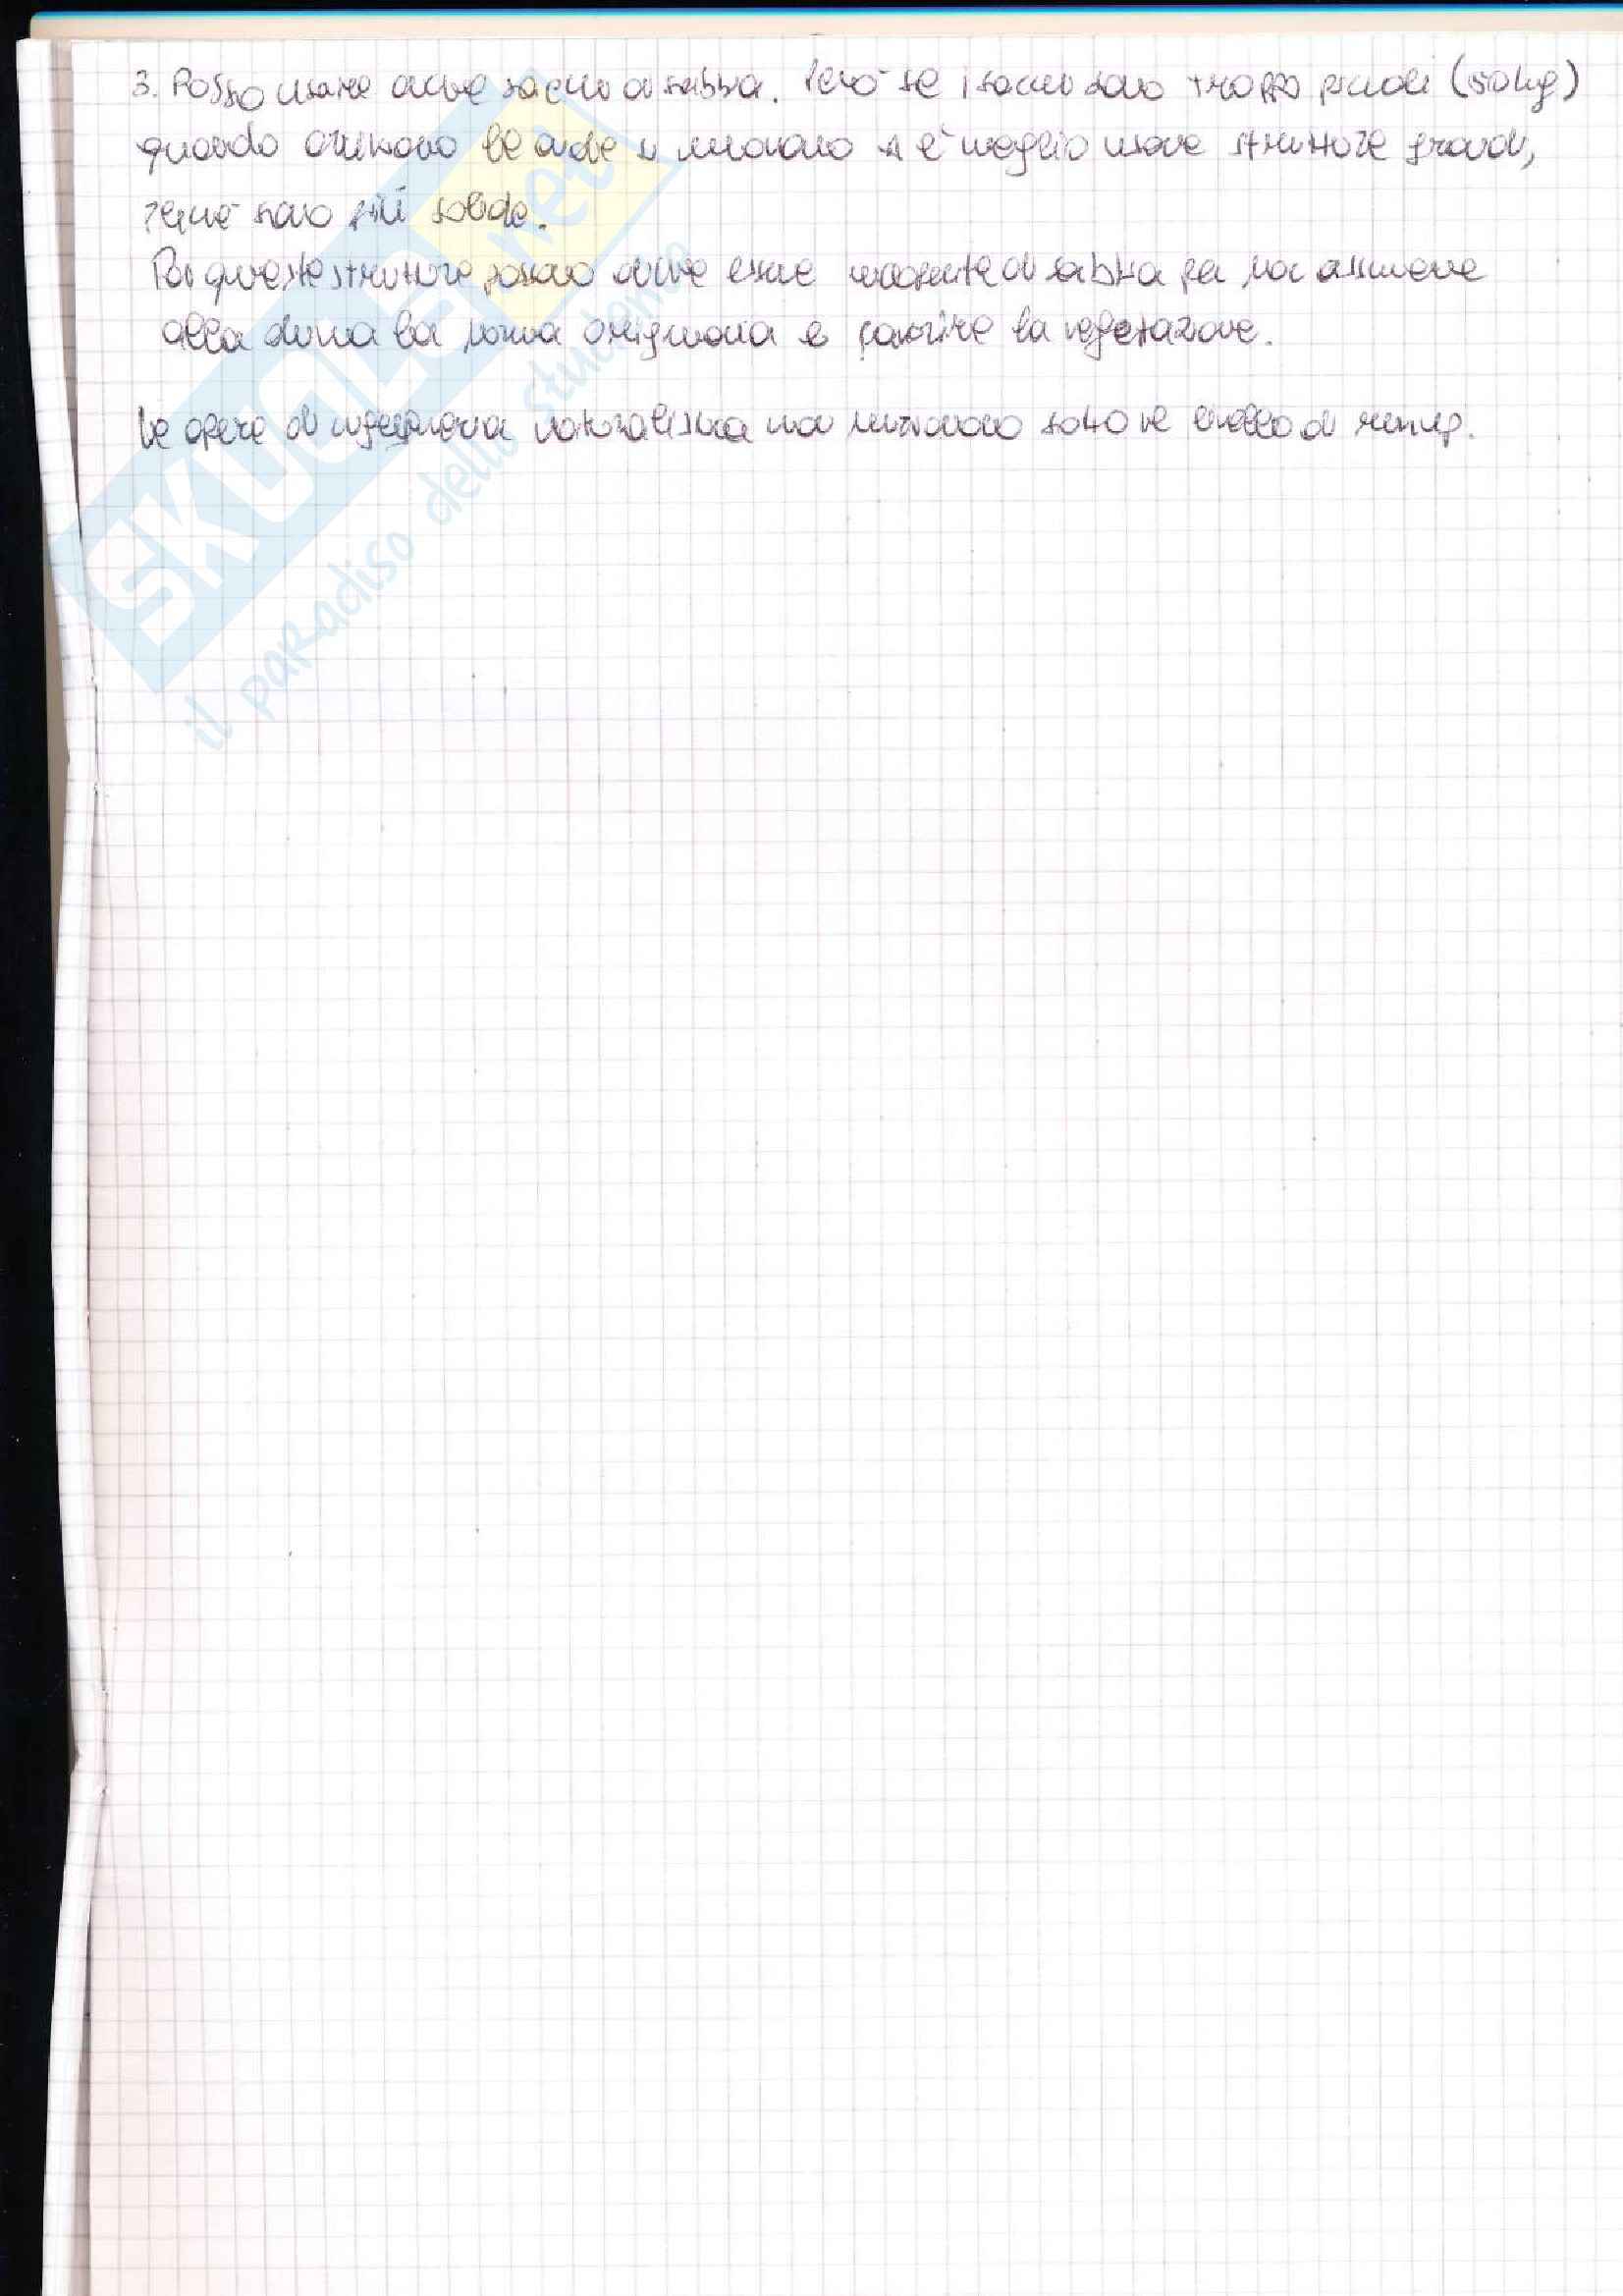 3. Posso usare anche sacchi di sabbia. Però se i sacchi sono troppo piccoli (50 kg)
quando arrivano le onde si muovono è meglio usare strutture grandi,
perché sono più solide.
Poi queste strutture possono anche essere ricoperte di sabbia per riassumere
alla duna la forma originaria e favorire la vegetazione.
Le opere di ingegneria naturalistica non funzionano sotto il livello di
SKUOLA.net
il paradiso dello studente